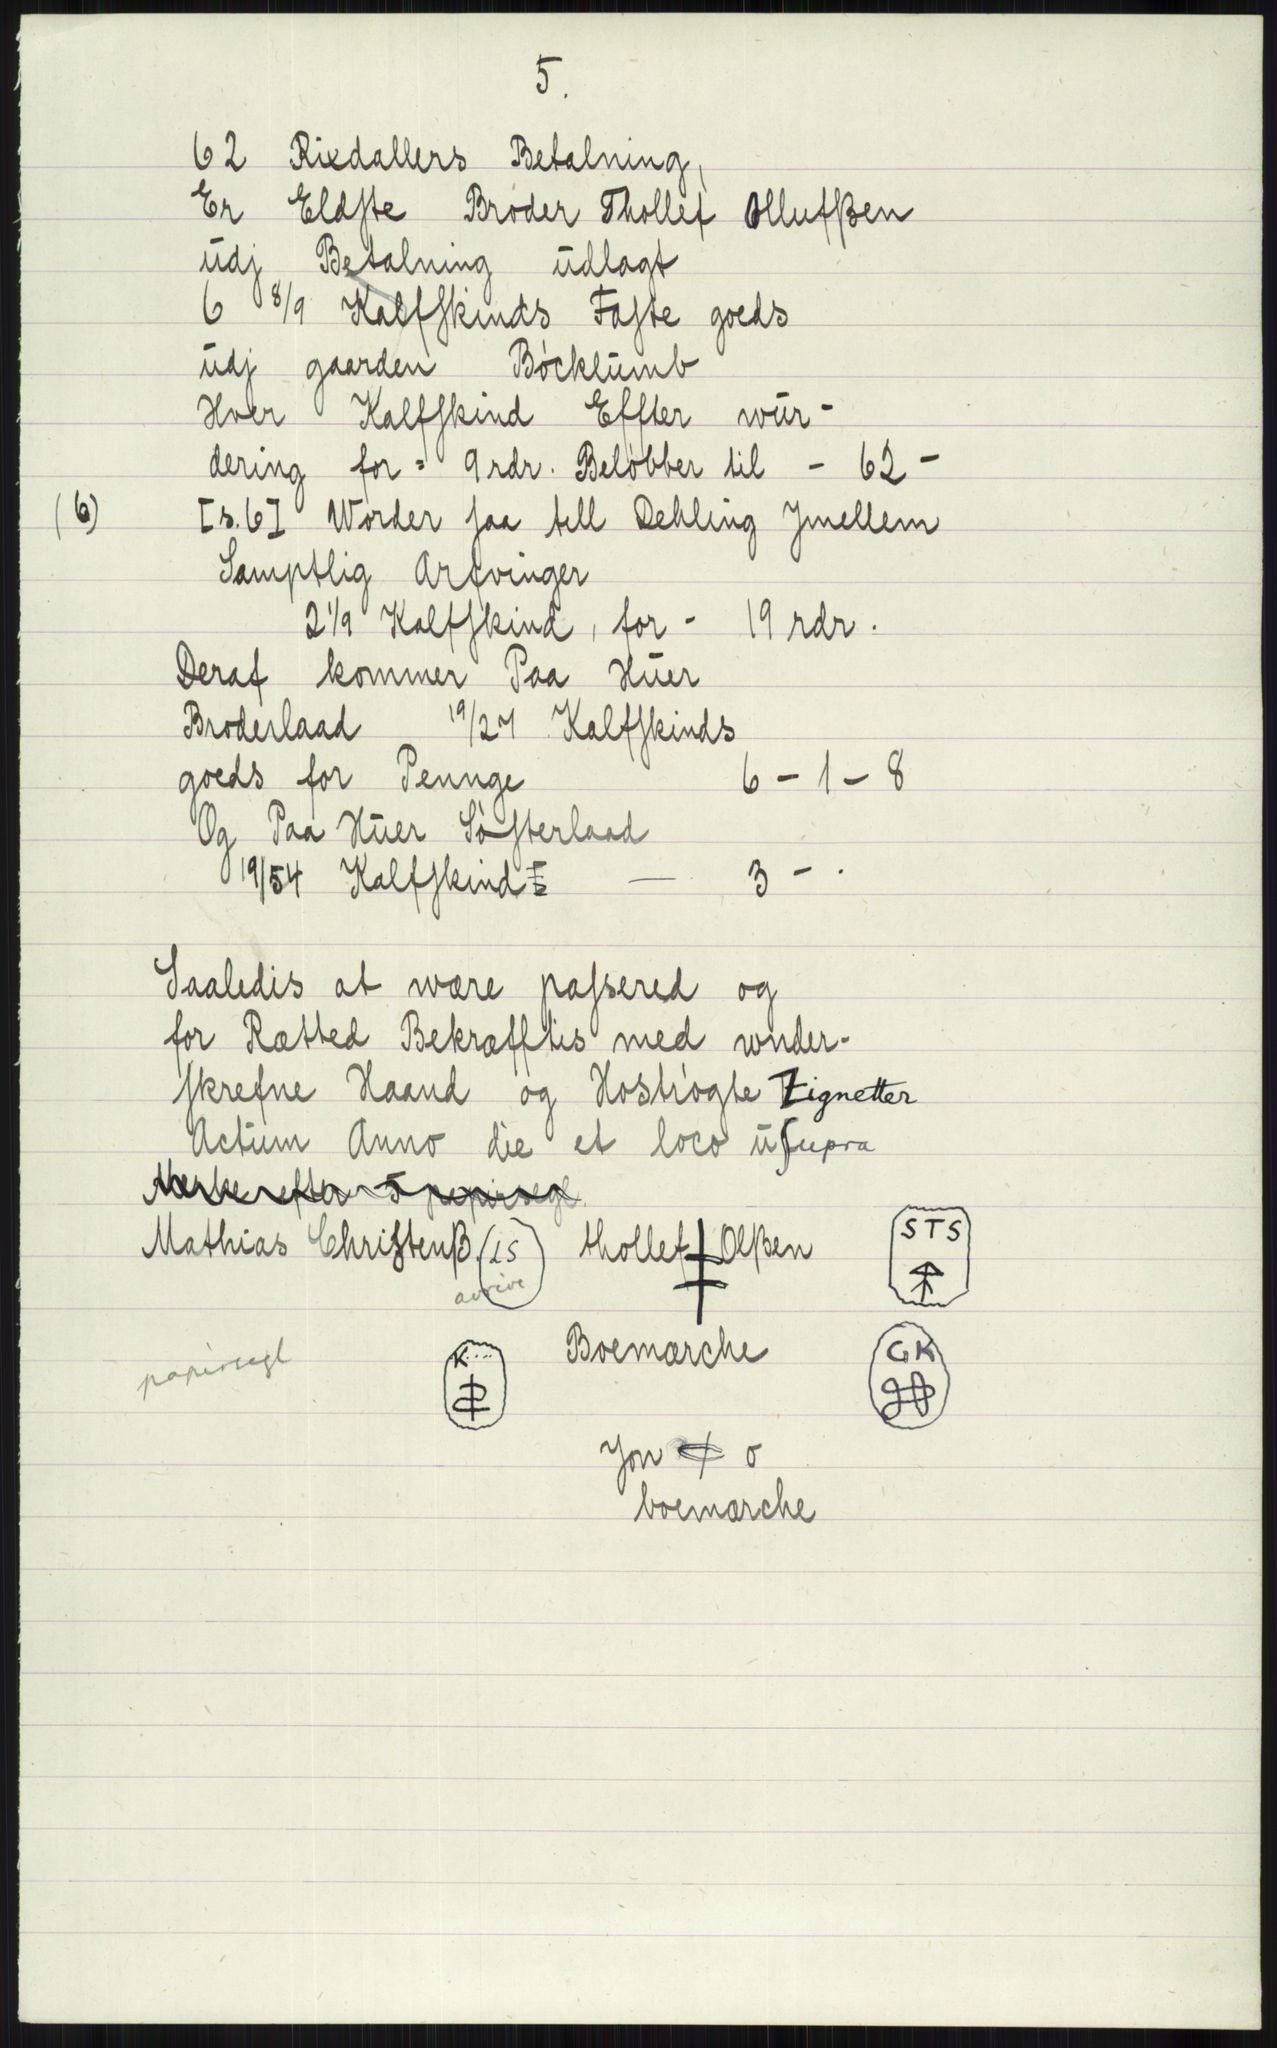 5.
62 Rixdallers Betalning,
Er Eldste Broder Thollef Ollufßen
udj Betalning udlagt
6 8/9 Kalfskinds Faste goeds
udj gaarden Böcklumb
Hver Kalfskind Effter wur-
dering for = 9 rdr. Beløbber til - 62 -
(6) [s.6] Worder saa till Dehling Jmellem
Samptlig Arfvinger
2 1/9 Kalfskind, for - 19 rdr.
Deraf kommer Paa Huer
Broderlaad 19/27 Kalfskinds
goeds for Pennge 6 - 1 - 8
Og Paa Huer Søsterlaad
19/54 Kalfskind — 3 - .
Saaledis at wære passered og
for Rætted Bekræfftis med wnder-
skrefne Haand og Hoströgte Zignetter
Actum Anno die et loco ut supra
Merke efter 5 papirsegl.
Mathias Christenß. (LS) thollef Olßen STS
avrive
Boemærche
papirsegl K... GK
Jon o
boemærche